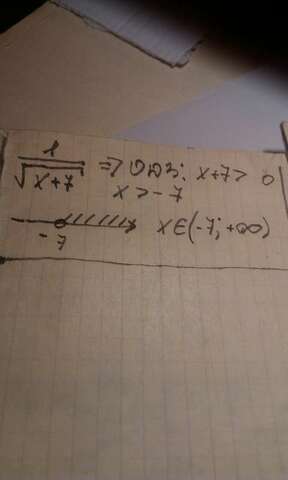 1/√(x+7) => ОДЗ: x+7> 0
x>-7
-7 x∈(-7; +∞)